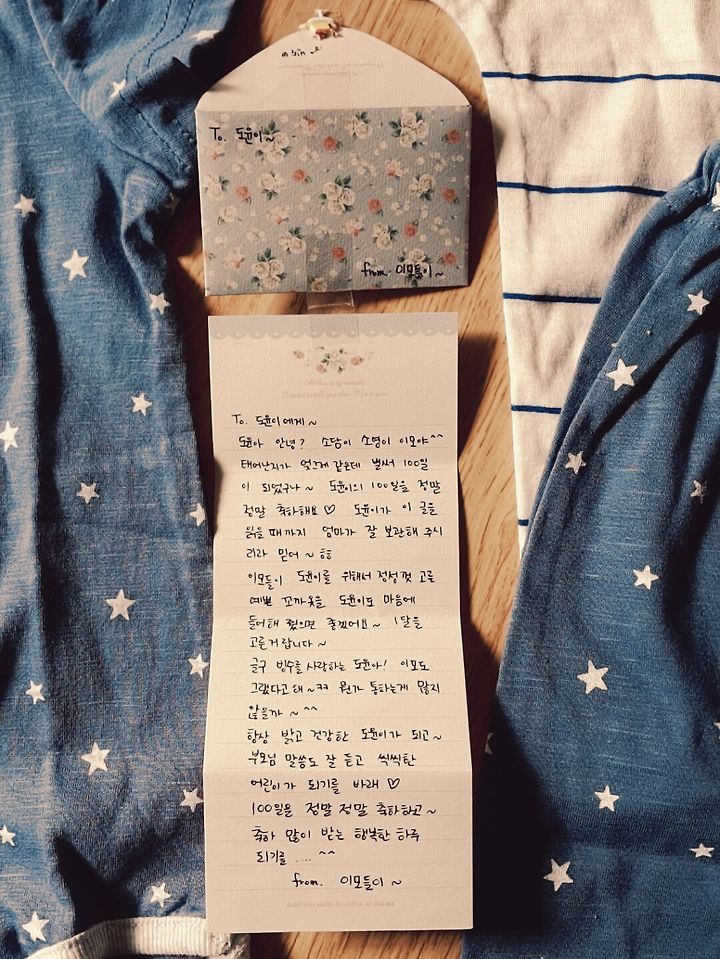 To. 도윤이~
from. 이모들이~
To. 도윤이에게~
도윤아 안녕? 소담이 소영이 이모야^^
태어난지가 엊그제 같은데 벌써 100일
이 되었구나~ 도윤이의 100일을 정말
정말 축하해요♡ 도윤이가 이 글을
읽을 때까지 엄마가 잘 보관해 주시
리라 믿어~ ㅎㅎ
이모들이 도윤이를 위해서 정성껏 고른
예쁜 꼬까옷을 도윤이도 마음에
들어해 줬으면 좋겠어요~ 1달을
고른거랍니다~
글구 빙수를 사랑하는 도윤아! 이모도
그랬다고 해~ㅋㅋ 뭔가 통하는게 많지
않을까~^^
항상 밝고 건강한 도윤이가 되고~
부모님 말씀도 잘 듣고 씩씩한
어린이가 되기를 바래♡
100일을 정말 정말 축하하고~
축하 많이 받는 행복한 하루
되기를 .... ^^
from. 이모들이~